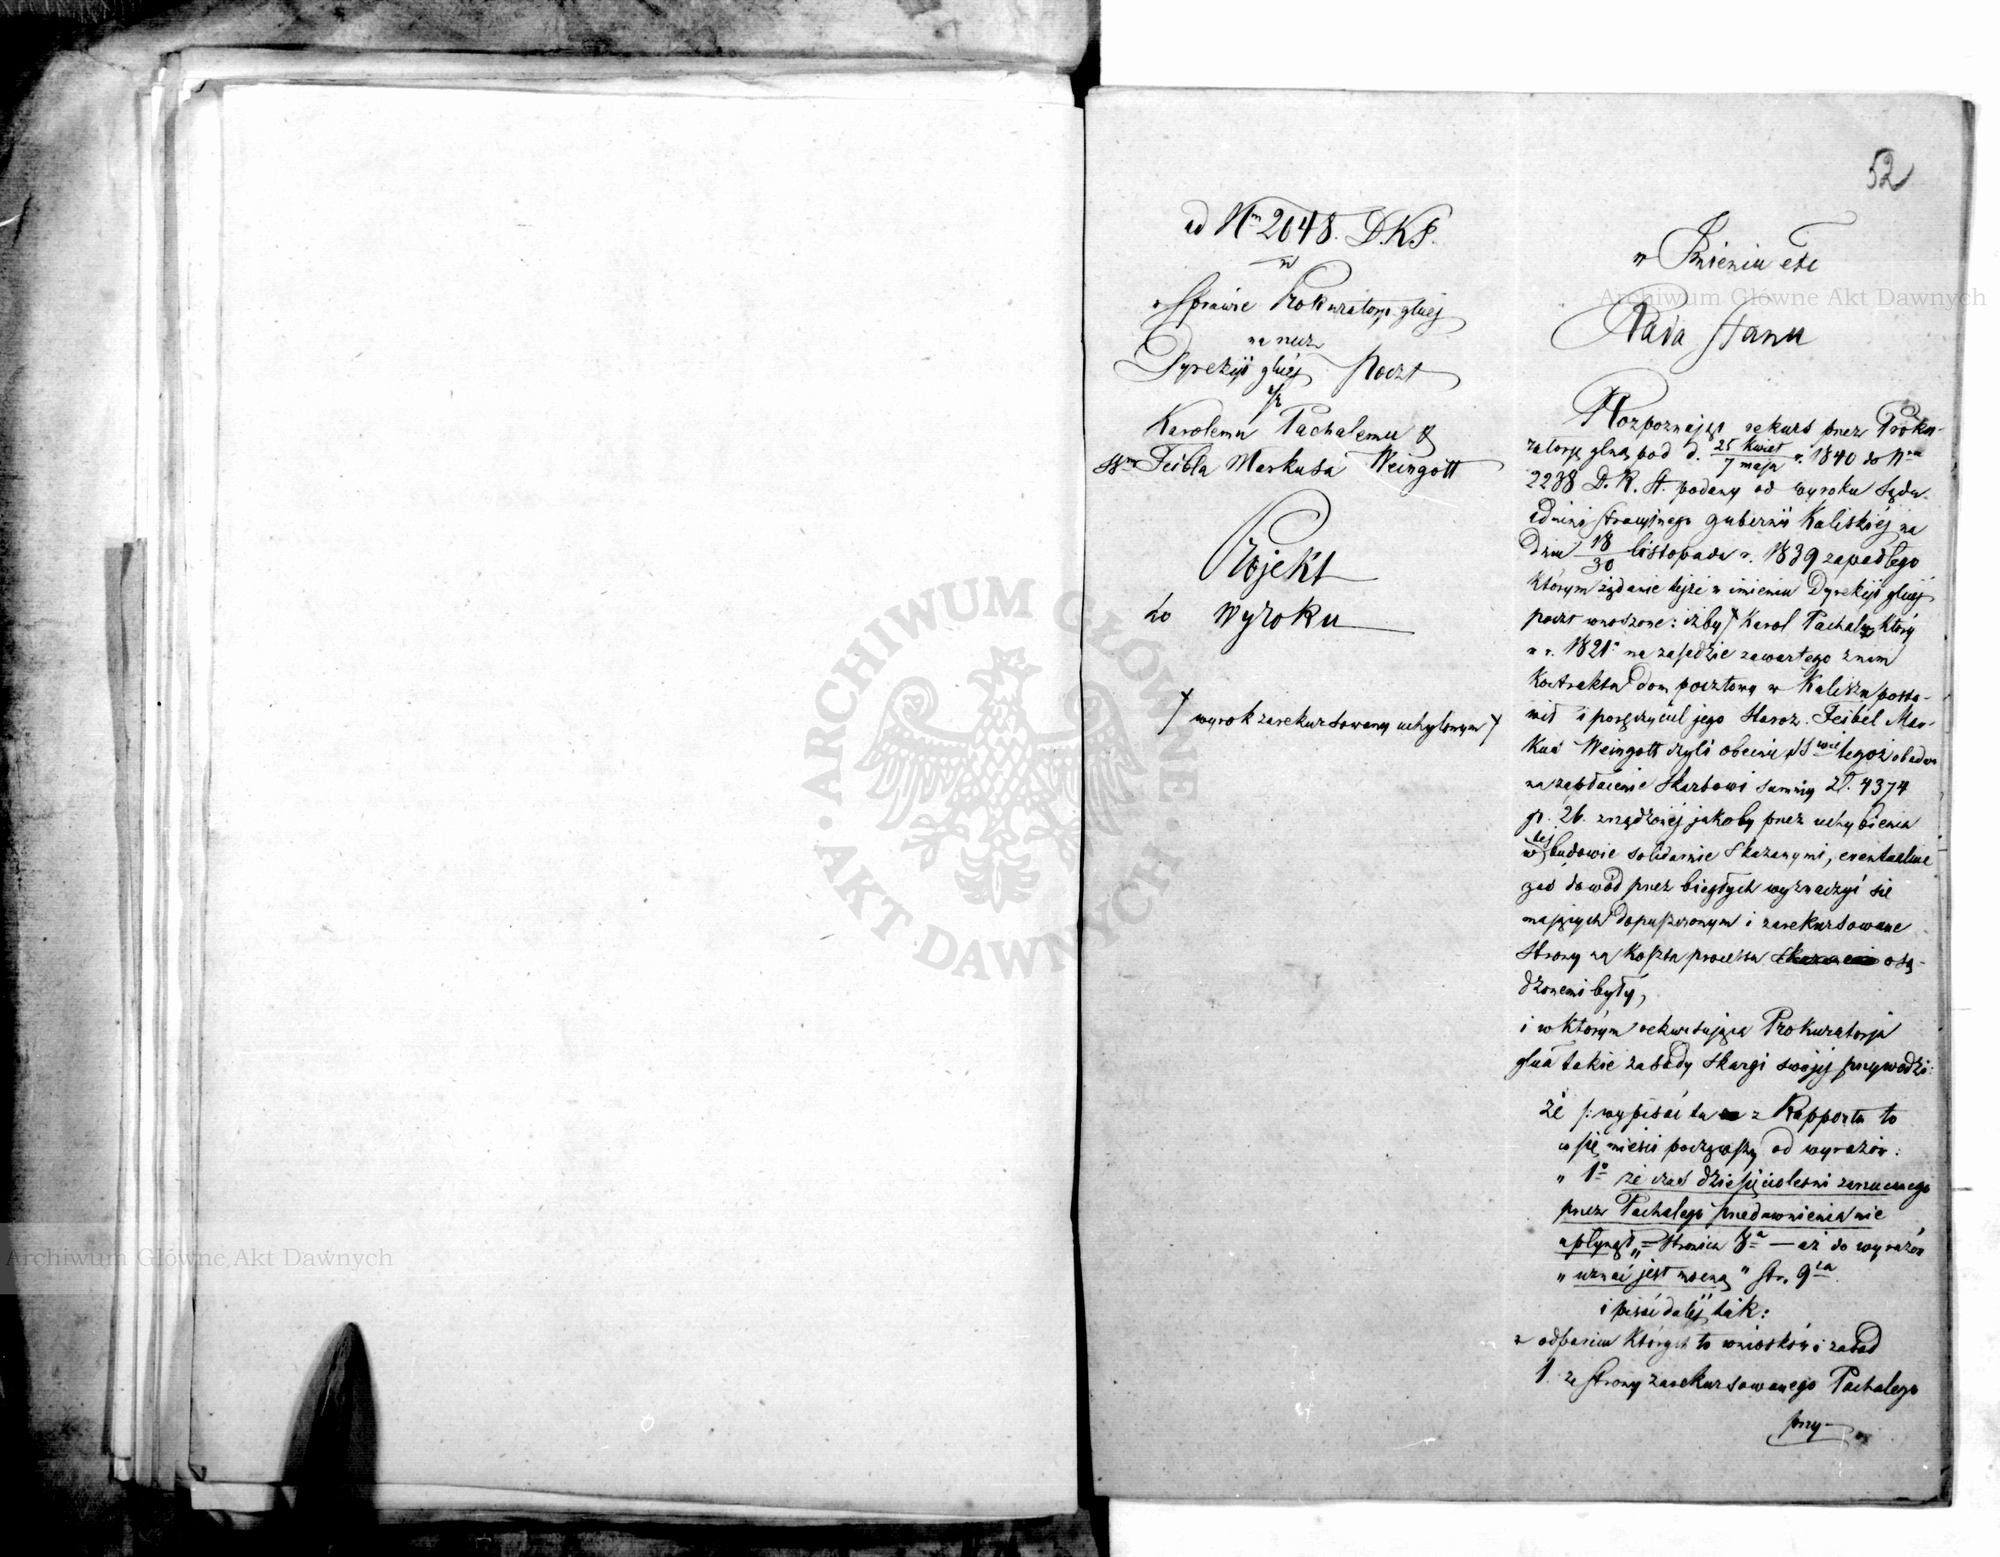 52
ad Nrm 2048. D.K.P.
w
Sprawie Prokuratoryi głnej
na rzecz
Dyrekcyi głnej Poczt
p/k
Karolemu Pachalemu &
SSrom Feibla Markusa Weingott
Projekt
do Wyroku
† wyrok zarekursowany uchylonym †
w Imieniu etc
Rada Stanu
Rozpoznając rekurs przez Proku-
ratorję głną pod d. 25 Kwiet / 7 maja r. 1840 do Nra
2288 D. R. St. podany od wyroku Sądu
administracyjnego gubernii Kaliskiej na
dniu 18/30 listopada r. 1839 zapadłego
którym żądanie tejże w imieniu Dyrekcyi głnej
poczt wnoszone: iżby † Karol Pachaly, który
w r. 1821 na zasadzie zawartego z nim
Kontraktu dom pocztowy w Kaliszu posta-
wił i poręczyciel jego Staroz. Feibel Mar-
kus Weingott czyli obecni SSwie tegoż obadwa
na zapłacenie Skarbowi summy zł. 4374
gr. 26. zrządzonej jakoby przez uchybienia
w tej budowie solidarnie skazanymi, eventualnie
zaś dowód przez biegłych wyznaczyć się
mających dopuszczonym i zarekursowane
Strony na Koszta processu osą-
dzonemi były,
i w którym rekursująca Prokuratorja
głna takie zasady skargi swojej przywodzi:
że /: wypisać tu z Rapportu to
co się mieści począwszy od wyrazów:
„ 1o że czas dziesięcioletni zarzucanego
przez Pachalego przedawnienia nie
upłynął „ = Stronica 8a — aż do wyrazów
„ uznać jest mocną " str. 9ta
i pisać dalej tak:
w odparciu których to wniosków i zasad
1. ze Strony zarekursowanego Pachalego
przy-
Archiwum Główne Akt Dawnych
Archiwum Główne Akt Dawnych
ARCHIWUM GŁÓWNE AKT DAWNYCH